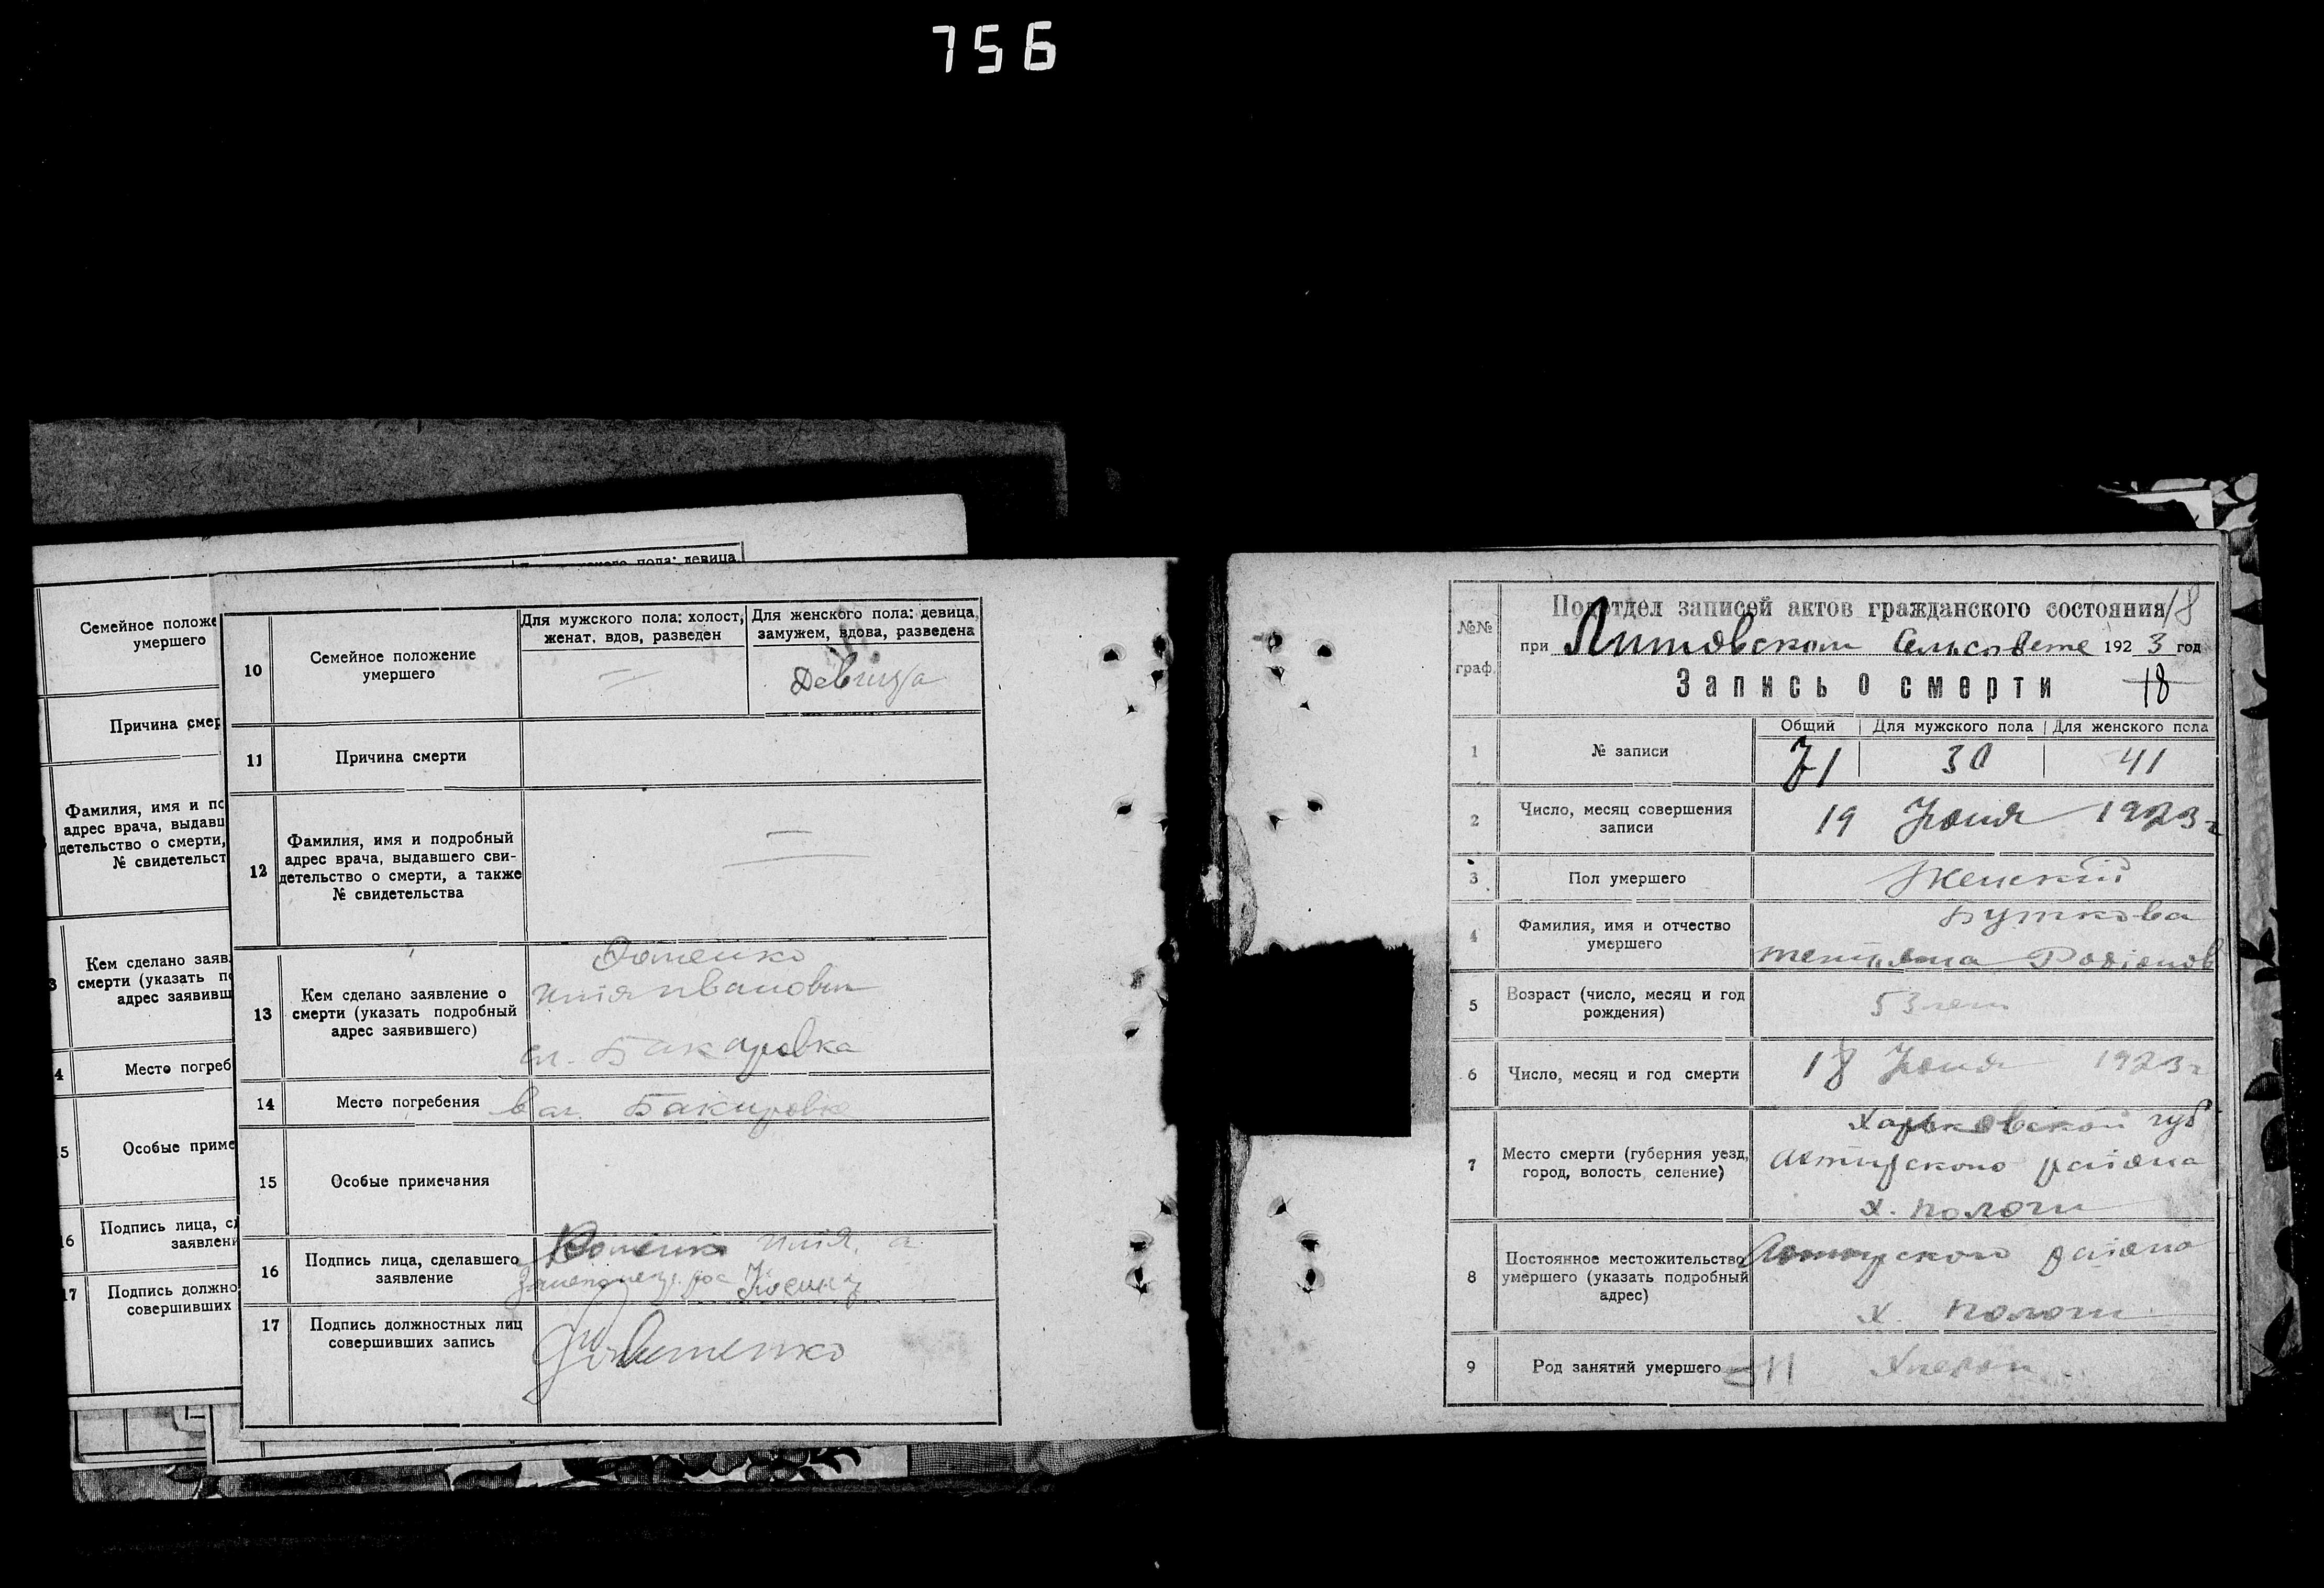 756
пола: девица
Семейное положе
умершего
Причина смер
Фамилия, имя и по
адрес врача, выдавш
детельство о смерти,
№ свидетельст
Кем сделано заяв
смерти (указать по
адрес заявивш
4 Место погреб
5 Особые приме
6 Подпись лица, сд
заявлени
17 Подпись должно
совершивших
10 Семейное положение
умершего
Для мужского пола: холост,
женат, вдов, разведен
Для женского пола: девица,
замужем, вдова, разведена
— Девица
11 Причина смерти
12 Фамилия, имя и подробный
адрес врача, выдавшего сви-
детельство о смерти, а также
№ свидетельства
—
13 Кем сделано заявление о
смерти (указать подробный
адрес заявившего)
Иванович
сл. Бакировка
14 Место погребения
в сл. Бакировке
15 Особые примечания
16 Подпись лица, сделавшего
заявление
17 Подпись должностных лиц
совершивших запись
№№
граф.
Подотдел записей актов гражданского состояния 18
при Литовском Сельсовете 1923 год
Запись о смерти 18
Общий Для мужского пола Для женского пола
1 № записи 71 30 41
2 Число, месяц совершения
записи
19 Июня 1923 г
3 Пол умершего Женский
4 Фамилия, имя и отчество
умершего
Буткова
Родіонов
5 Возраст (число, месяц и год
рождения)
53 лет
6 Число, месяц и год смерти 18 Июня 1923 г
7 Место смерти (губерния уезд,
город, волость, селение)
Харьковской губ
Ахтырского раіона
х. Пологи
8 Постоянное местожительство
умершего (указать подробный
адрес)
Ахтырского раіона
х. Пологи
9 Род занятий умершего